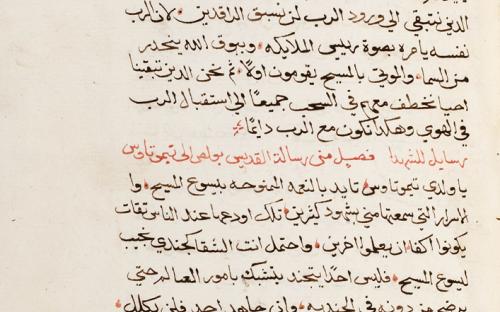 الذين نتبقي الي ورود الرب لن نسبق الراقدين. لان الرب
نفسه يامره بصوة رييس الملايكه. وببوق الله ينحدر
من السما. والموتي بالمسيح يقومون اولًا. ثم نحن الذين تبقينا
احيا نخطف معهم في السحب جميعًا الي استقبال الرب
في الهوي وهكذا نكون مع الرب دايمًا.
رسايل للشهدا فصل من رسالة القديس بولص الي تيموتاوس
يا ولدي تيموتاوس. تايد بالنعمه الممنوحه بيسوع المسيح. وا
لاسرار التي سمعتها مني بشهود كثيرين. تلك اودعها عند الناس تقات
يكونوا اكفا ان يعلموا اخرين. واحتمل انت الشقا كجندي نجيب
ليسوع المسيح. فليس احدًا يتجند يتشبك بامور العالم حتي
يرضي من دونه في الجنديه. وان جاهد احد فلن يكلل